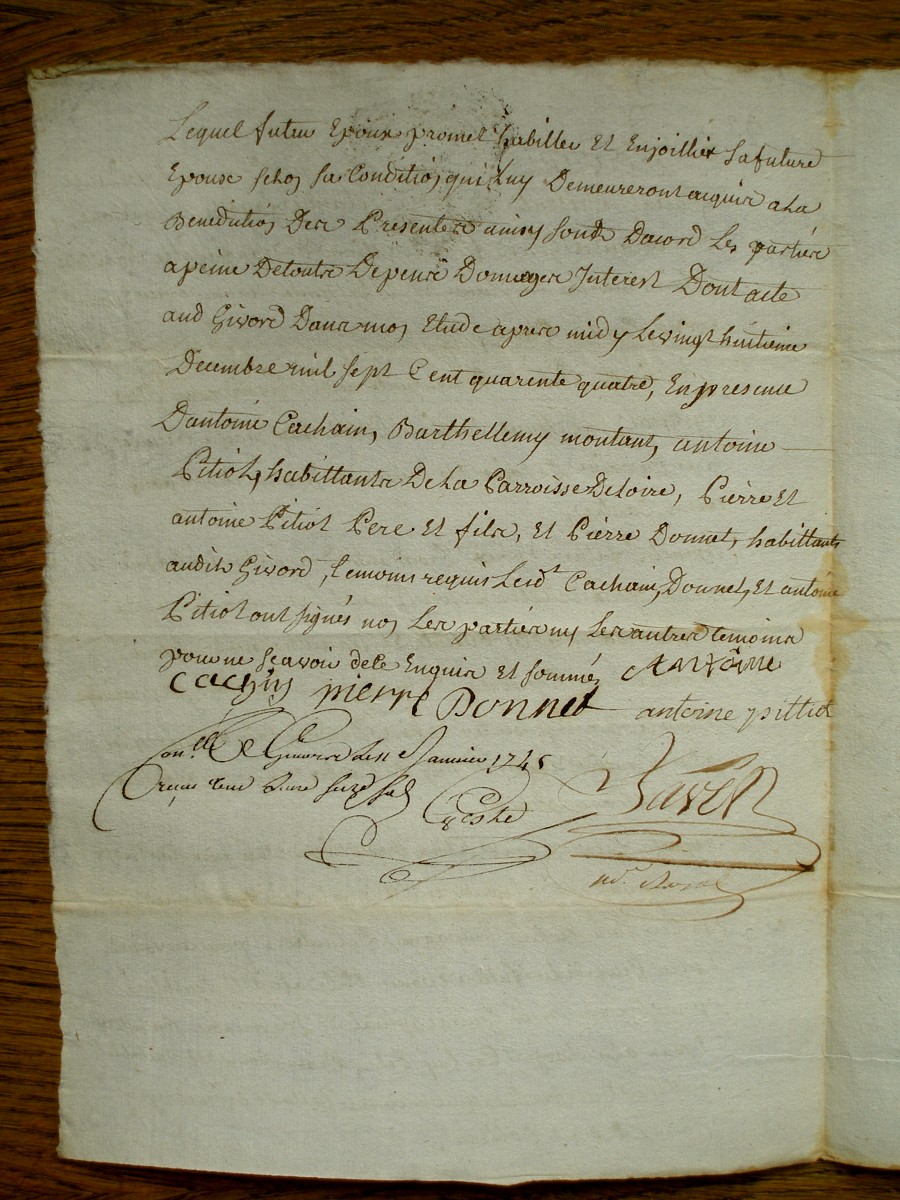 Lequel futur Epoux promet habiller Et Enjoillier sa future
Epouse selon sa Condition qui Luy Demeureront acquis a la
Benediction Des Presentes ainsy sont Dacord Les parties
a peine De toutes Depens Domages Interest Dont acte
aud Givord Dans mon Etude apres midy Le vingt huitieme
Decembre mil sept Cent quarente quatre, En presence
Dantoine Cachain, Barthellemy montant, antoine
Pitiot, habittants De La Parroisse De loire, Pierre Et
antoine Pitiot Pere Et fils, Et Pierre Donnet, habittants
audit Givord, temoins requis Lesd.t Cachain, Donnet, Et antoine
Pitiot ont signés non Les parties ny Les autres temoins
pour ne scavoir de ce Enquis Et sommés Antoine
Cachin pierre Donnet antoine pittiot
Con.llé a Givors le Janvier 1745
Reçus seize sols